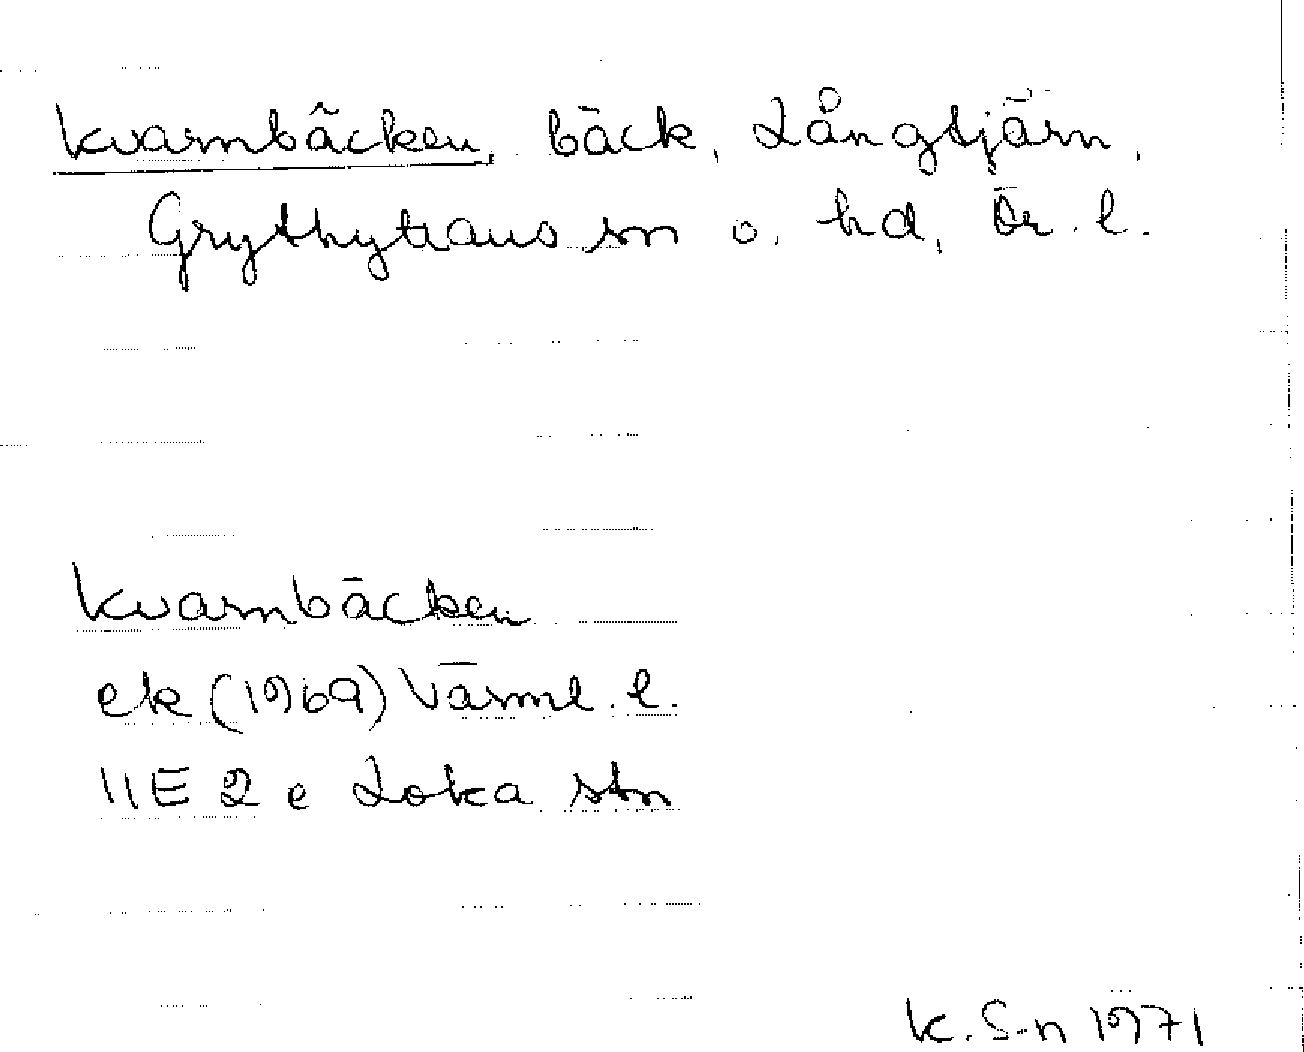 Kvarnbäcken, bäck, Långtjärn,
Grythyttans sn o. hd, Ör. l.
Kvarnbäcken
ek (1969) Värml. l.
11E 2 e Loka stn
K. S-n 1971